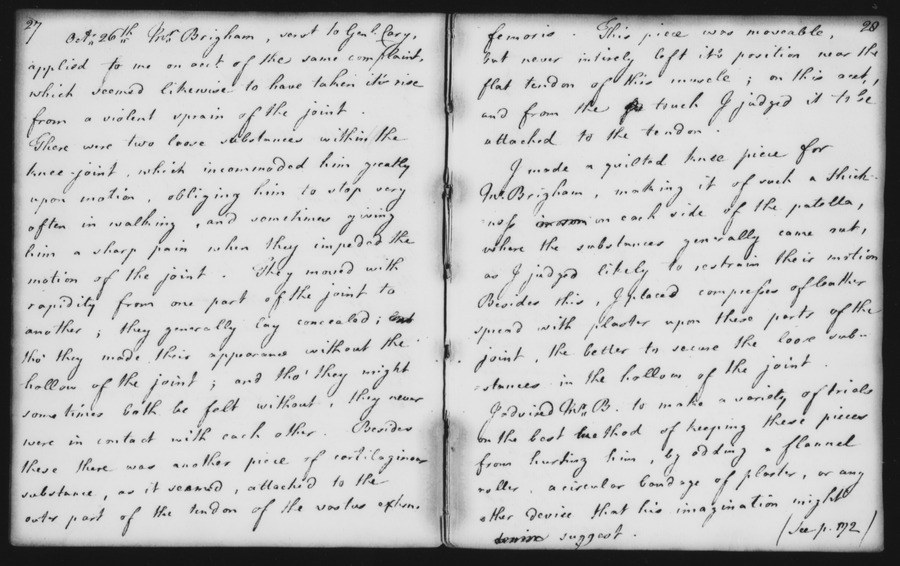 27
Oct: 26th Mr. Brigham, servt to Genl. Cary,
applied to me on acct of the same complaint,
which seemed likewise to have taken it's rise
from a violent sprain of the joint.
There were two loose substances within the
knee-joint, which incommoded him greatly
upon motion, obliging him to stop very
often in walking, and sometimes giving
him a sharp pain when they impeded the
motion of the joint. They moved with
rapidity from one part of the joint to
another; they generally lay concealed;
tho' they made their appearance without the
hollow of the joint; and tho' they might
sometimes both be felt without, they never
were in contact with each other. Besides
these there was another piece of cartilaginous
substance, as it seemed, attached to the
outer part of the tendon of the vastus extern.
28
femoris. This piece was moveable,
but never intirely left it's position near the
flat tendon of this muscle; on this acct,
and from the touch I judged it to be
attached to the tendon.
I made a quilted knee piece for
Mr. Brigham, making it of such a thick-
ness on each side of the patella,
where the substances generally came out,
as I judged likely to restrain their motion
Besides this, I placed compresses of leather
spread with plaster upon these parts of the
joint, the better to secure the loose sub-
stances in the hollow of the joint.
I advised Mr. B. to make a variety of trials
on the best method of keeping these pieces
from hurting him, by adding a flannel
roller, a circular bandage of plaster, or any
other devise that his imagination might
suggest. (See p. 192)